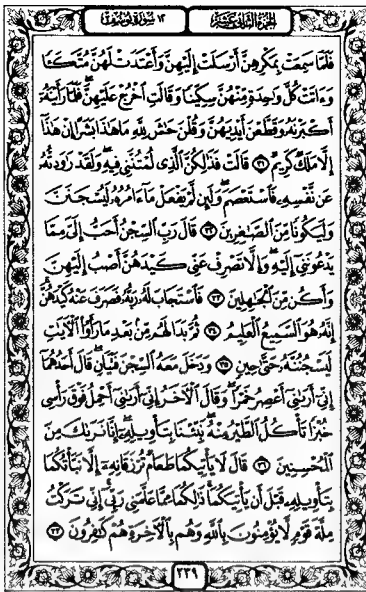 الجزء الثاني عشر
١٢ سورة يوسف
فَلَمَّا سَمِعَتْ بِمَكْرِهِنَّ أَرْسَلَتْ إِلَيْهِنَّ وَأَعْتَدَتْ لَهُنَّ مُتَّكَـًٔا
وَءَاتَتْ كُلَّ وَٰحِدَةٍ مِّنْهُنَّ سِكِّينًا وَقَالَتِ ٱخْرُجْ عَلَيْهِنَّ ۖ فَلَمَّا رَأَيْنَهُۥٓ
أَكْبَرْنَهُۥ وَقَطَّعْنَ أَيْدِيَهُنَّ وَقُلْنَ حَٰشَ لِلَّهِ مَا هَٰذَا بَشَرًا إِنْ هَٰذَآ
إِلَّا مَلَكٌ كَرِيمٌ ٣١ قَالَتْ فَذَٰلِكُنَّ ٱلَّذِى لُمْتُنَّنِى فِيهِ ۖ وَلَقَدْ رَٰوَدتُّهُۥ
عَن نَّفْسِهِۦ فَٱسْتَعْصَمَ ۖ وَلَئِن لَّمْ يَفْعَلْ مَآ ءَامُرُهُۥ لَيُسْجَنَنَّ
وَلَيَكُونًا مِّنَ ٱلصَّٰغِرِينَ ٣٢ قَالَ رَبِّ ٱلسِّجْنُ أَحَبُّ إِلَىَّ مِمَّا
يَدْعُونَنِىٓ إِلَيْهِ ۖ وَإِلَّا تَصْرِفْ عَنِّى كَيْدَهُنَّ أَصْبُ إِلَيْهِنَّ
وَأَكُن مِّنَ ٱلْجَٰهِلِينَ ٣٣ فَٱسْتَجَابَ لَهُۥ رَبُّهُۥ فَصَرَفَ عَنْهُ كَيْدَهُنَّ ۚ
إِنَّهُۥ هُوَ ٱلسَّمِيعُ ٱلْعَلِيمُ ٣٤ ثُمَّ بَدَا لَهُم مِّنۢ بَعْدِ مَا رَأَوُا۟ ٱلْءَايَٰتِ
لَيَسْجُنُنَّهُۥ حَتَّىٰ حِينٍ ٣٥ وَدَخَلَ مَعَهُ ٱلسِّجْنَ فَتَيَانِ ۖ قَالَ أَحَدُهُمَآ
إِنِّىٓ أَرَىٰنِىٓ أَعْصِرُ خَمْرًا ۖ وَقَالَ ٱلْءَاخَرُ إِنِّىٓ أَرَىٰنِىٓ أَحْمِلُ فَوْقَ رَأْسِى
خُبْزًا تَأْكُلُ ٱلطَّيْرُ مِنْهُ ۖ نَبِّئْنَا بِتَأْوِيلِهِۦٓ ۖ إِنَّا نَرَىٰكَ مِنَ
ٱلْمُحْسِنِينَ ٣٦ قَالَ لَا يَأْتِيكُمَا طَعَامٌ تُرْزَقَانِهِۦٓ إِلَّا نَبَّأْتُكُمَا
بِتَأْوِيلِهِۦ قَبْلَ أَن يَأْتِيَكُمَا ۚ ذَٰلِكُمَا مِمَّا عَلَّمَنِى رَبِّىٓ ۚ إِنِّى تَرَكْتُ
مِلَّةَ قَوْمٍ لَّا يُؤْمِنُونَ بِٱللَّهِ وَهُم بِٱلْءَاخِرَةِ هُمْ كَٰفِرُونَ ٣٧
٢٣٩